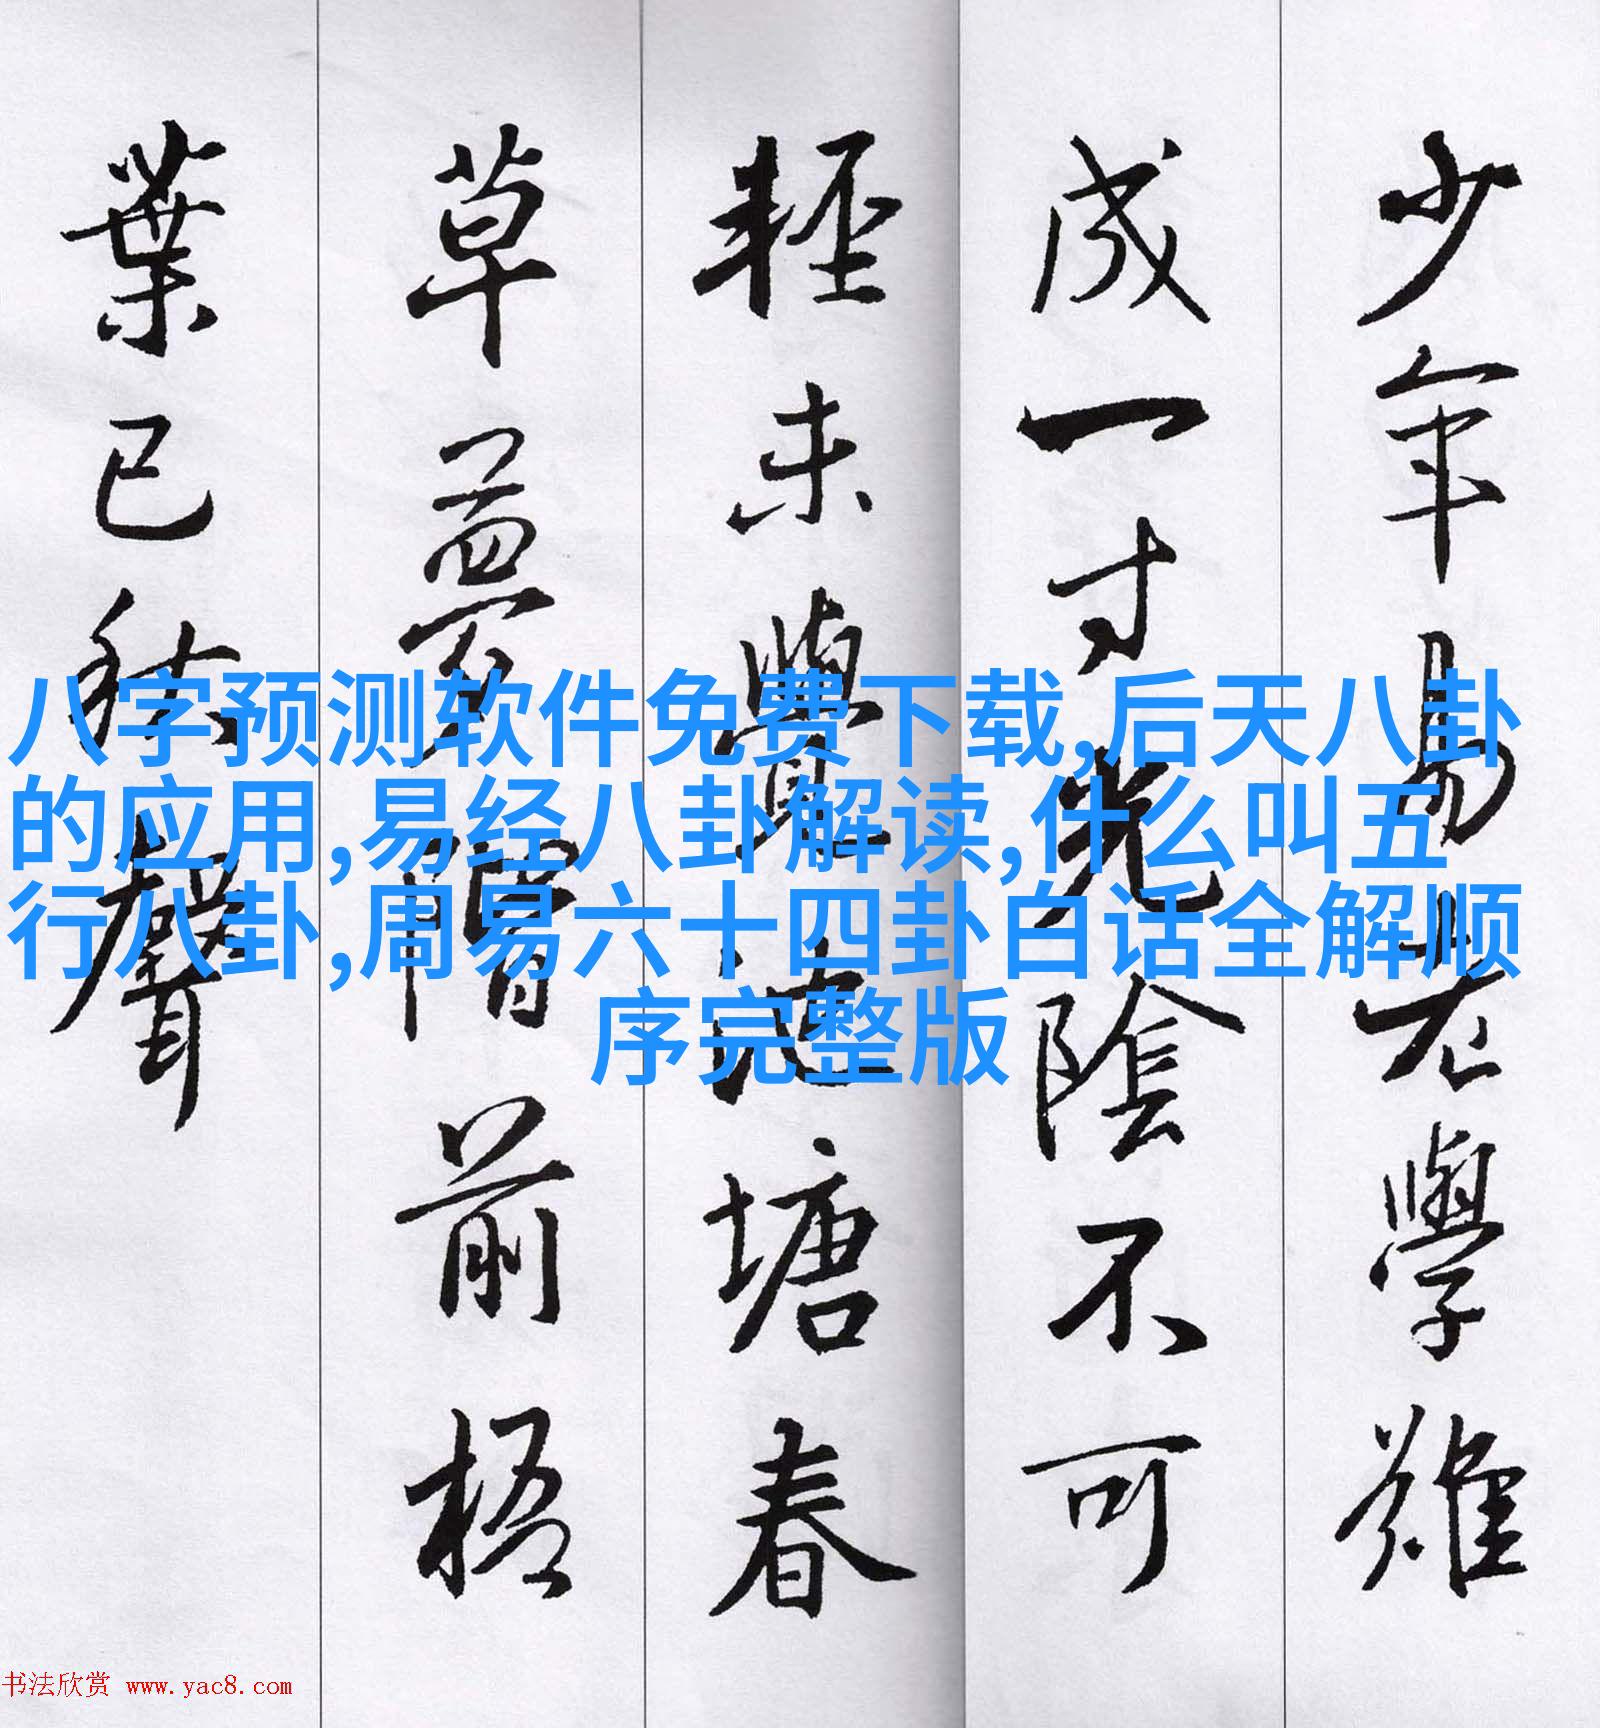 少年易老學難
成一寸光陰不可
輕未覺池塘春
草夢階前梧
葉已秋聲
八字预测软件免费下载,后天八卦
的应用,易经八卦解读,什么叫五
行八卦,周易六十四卦白话全解顺
序完整版
书法欣赏 www.yac8.com